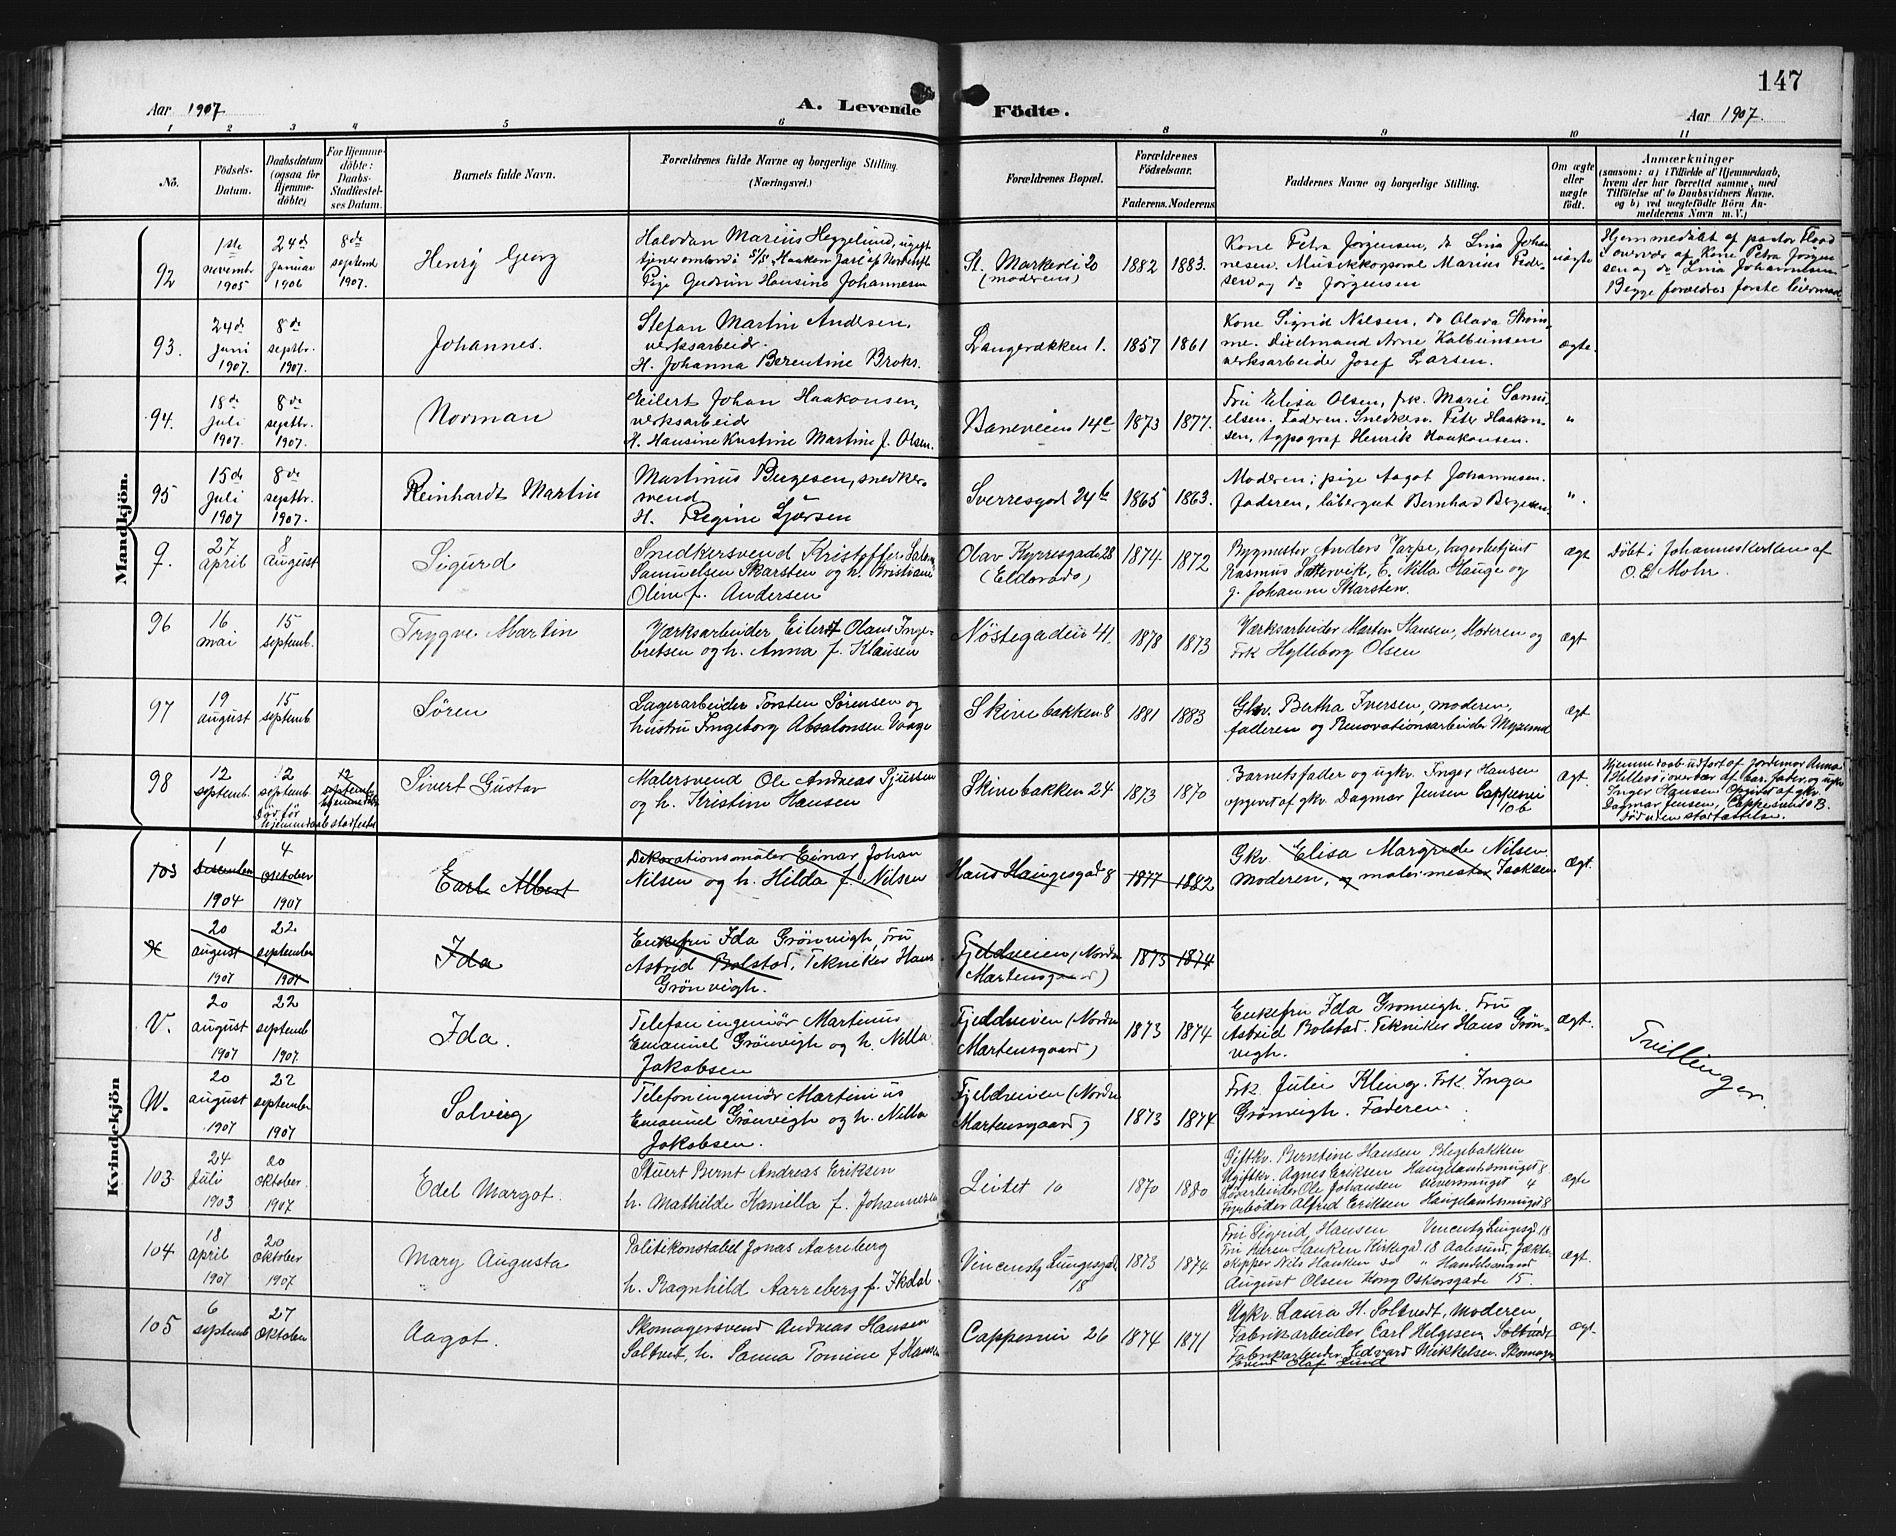 147
Aar 1907
A. Levende
Födte.
Aar 1907.
1 2 3 4 5 6 8 9 10 11
No.
Födsels-
Datum.
Daabsdatum
(ogsaa for
Hjemme-
döbte)
For Hjemme-
döbte:
Daabs-
Stadfæstel-
ses Datum.
Barnets fulde Navn.
Forældrenes fulde Navne og borgerlige Stilling.
(Næringsvei.)
Forældrenes Bopæl.
Forældrenes
Födselsaar.
Faderens. Moderens
Faddernes Navne og borgerlige Stilling.
Om ægte
eller
uægte
födt.
Anmærkninger
(saasom: a) i Tilfælde af Hjemmedaab,
hvem der har forrettet samme, med
Tilföielse af to Daabsvidners Navne.
og b) ved uægtefödte Börn An-
melderens Navn m. V.)
Mandkjön.
92
1ste
novembr
1905
24de
Januar
1906
8de
septembr
1907.
Henry Georg
Halvdan Marius Heggelund, ugift
Haakon Jarl af
Pige Gudrun Hansine Johannesen
St. Markevei 20
(moderens)
1882 1883.
Kone Petra Jørgensen, do Lina Johan
nesen. Musikkorporal Marius Peder-
sen og do Jørgensen
uægte
Hjemmedøbt af pastor Flood
i overvær af Kone Petra Jørgen
sen og do Lina Johannesen
Begge forældres første leiermaal
93.
24de
juni
1907.
8de
septbr.
1907.
Johannes.
Stefan Martin Andersen,
verksarbeidr.
H. Johanna Berentine Broks.
Langerækken 1.
1857 1861
Kone Sigrid Nilsen, do Olava Strøm-
me. Arne Kolbeinsen
verksarbeider Josef Larsen.
ægte.
94.
18de
Juli
1907.
8de
septbr.
1907.
Norman
Eilert Johan Haakonsen,
verksarbeidr
H. Hansine Kristine Martine f. Olsen.
Baneveien 14c
1873 1877.
Fru Elisa Olsen, frk. Marie Samu-
elsen. Faderen. Snedkersv. Peter Haakon-
sen, typograf Henrik Haakonsen.
"
95
15de
Juli
1907
8de
septbr.
1907.
Reinhardt Martin
Martinus Bergesen, snedker-
svend
H. Regine
Sverresgad 24b
1865 1863.
Moderen; pige Aagot Johannesen.
Faderen, løbergut Bernhard Bergesen.
".
9.
27
April
8
August
Sigurd
Snedkersvend Kristoffer
Samuelsen Skarsten og h. Kristiane
Oline f. Andersen
Olav Kyrresgade 28
(Eldorado)
1874 1872
Bygmester Anders Varpe, lagerbetjent
Rasmus Sættervik, E. Nilla Hauge og
g. Johanne Skarsten.
ægt
Døbt i Johanneskirken af
O. E. Mohr.
96
16
mai
15
septemb.
Trygve Martin
Værksarbeider Eilert Olaus Inge-
bretsen og h. Anna f. Klausen
Nöstegaden 41.
1878 1873
Værksarbeider Morten Hansen, Moderen og
Frk Hylleborg Olsen
ægt
97
19
august
15
septemb
Søren
Lagerarbeider Torsten Sørensen og
hustru Ingeborg Absalonsen Vaage
Skivebakken 8
1881 1883
Gkv. Bertha Iversen, moderen,
faderen og Renovationsarbeider
ægt
98
12
septemb.
12
septemb
12
septemb
Sivert Gustav
Malersvend Ole Andreas Sjursen
og h. Kristine Hansen
Skivebakken 24
1873 1870
Barnets fader og ugkv. Inger Hansen
opgivet af gkv. Dagmar Jensen Cappesvei
10 b
ægt.
Hjemmedaab udført af jordemor Anna
Hillesø i overvær af bar. fader, og ugkv
Inger Hansen Opgivet af gkv.
Dagmar Jensen, Cappesvei 10 B.
Død uden stadfæstelse.
Kvindekjön
103
1
December
1904
4
October
1907
Carl Albert
Dekorationsmaler Einar Johan
Nilsen og h. Hilda f. Nilsen
Hans Haugesgad 8
1877 1882
Gkv. Elisa Margrede Nilsen
moderen, og malermester Isaksen
Ægt.
20
august
1907
22
september
1907
Ida
Enkefru Ida Grönvigh, Fru
Astrid Bolstad, Tekniker Hans
Grönvigh.
Fjeldveien (Nordre
Martensgaard)
1873 1874
V.
20
august
1907
22
septemb
1907
Ida.
Telefoningeniör Martinus
Emanuel Grönvigh og h. Nilla
Jakobsen
Fjeldveien (Nordre
Martensgaard)
1873 1874
Enkefru Ida Grönvigh. Fru
Astrid Bolstad. Tekniker Hans Grön-
vigh.
Ægt.
Tvillinger.
W.
20
august
1907
22
september
1907
Solveig
Telefoningeniör Martinius
Emanuel Grönvigh og h. Nilla
Jakobsen.
Fjeldveien (Nordre
Martensgaard)
1873 1874
Frk. Julie Kling. Frk. Inga
Grönvigh. Faderen.
103.
24
Juli
1903
20
Oktober.
1907
Edel Margot.
Stuert Bernt Andreas Eriksen
h. Mathilde Kamilla f. Johannesen
Leitet 10
1870 1880
Giftkv. Berntine Hansen Blegebakken
Ugiftkv. Agnes Eriksen Haugelandsmuget 8
Ole Johansen Veversmuget 4
Alfred Eriksen Haugelandsmuget 8
ægte
104
18
April
1907
20
Oktober
1907
Mary Augusta
Politikonstabel Jonas Aarreberg
h. Ragnhild Aarreberg f. Ikdal
Vincentz Lungesgd.
18
1873 1874
Fru Sigrid Hansen Vincentz Lungesgd. 18
Fru Karen Hauken Kirkegd 18 Aalesund, Jækte-
skipper Nils Hauken do " Handelsmand
August Olsen Kong Oskarsgade 15.
Ægt.
105
6
septemb
27
Oktober
Aagot.
Skomagersvend Andreas Hansen
Soltvet, h. Sanna Tomine f. Hansen
Cappesvei 26
1874 1871
Ugkv. Laura H. Soltvedt, Moderen,
Fabrikarbeider Carl Helgesen Soltvedt
Fabrikarbeider Edvard Mikkelsen. Skomager-
svend Olaf Lund
ægt.